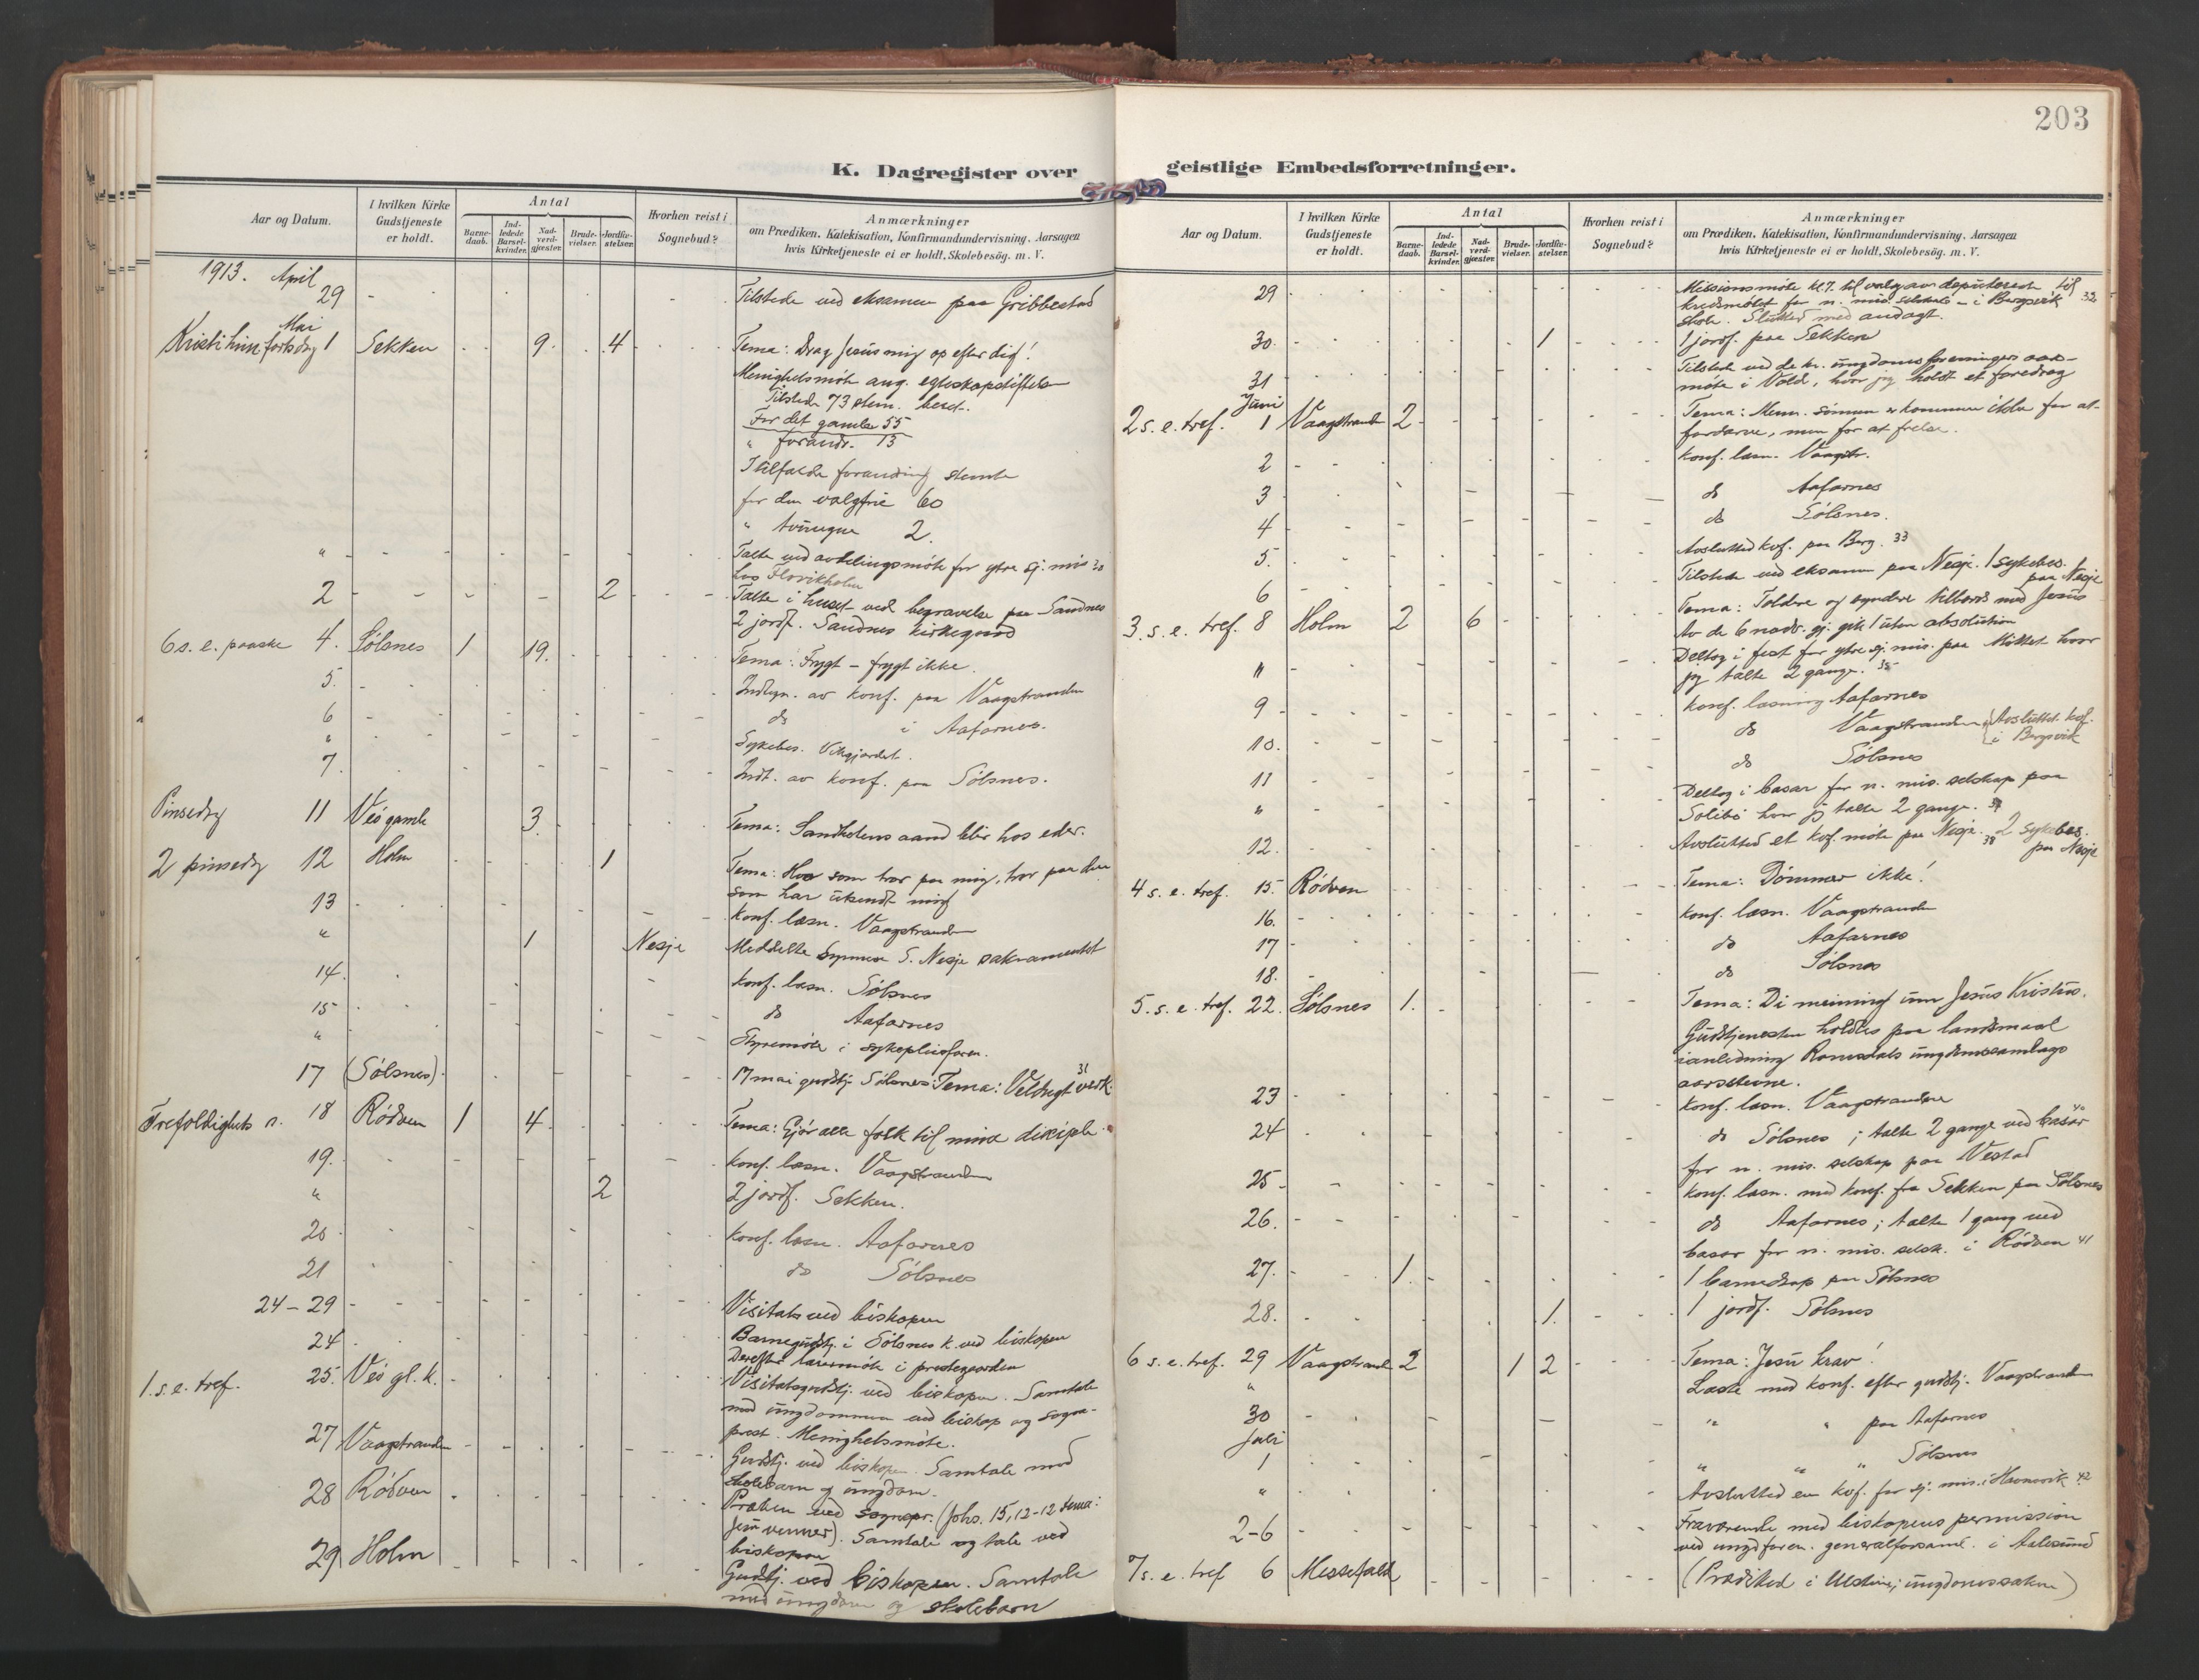 K. Dagregister over
Aar og Datum.
I hvilken Kirke Gudstjeneste er holdt.
Antal
Barne-daab.
Ind-ledede Barsel-kvinder.
Nad-verd-gjæster.
Brude-vielser.
Jordfæ-stelser.
Hvorhen reist i Sognebud?
Anmærkninger
om Prædiken, Katekisation, Konfirmandundervisning, Aarsagen
hvis Kirketjeneste ei er holdt, Skolebesög. m. V.
1913. April
29 Tilstede ved eksamen paa Gribbestad
Mai
Kristi himfartsdag 1 Sekken 9 4 Tema: Drag Jesus mig op efter dig!
Menighetsmöte ang. egteskapstiftelse
Tilstede 73 stem. beret.
For det gamle 55
" forandr. 13
I tilfælde forandring stemte
for den valgfrie 60
" tvungne 2.
" Talte ved avdelingsmöte for ytre sj. mis 30
hos Flovikholm
2 2 Talte i huset ved begravelse paa Sandnes
2 jordf. Sandnes kirkegaard
6 s. e. paaske 4. Sölsnes 1 19. Tema: Frygt – frygt ikke.
5. Indtegn. av konf. paa Vaagstranden
6 do i Aafarnes.
" Sykebes. Vikgjærdet.
7. Indt. av konf. paa Sölsnes.
Pinsedag 11 Veö gamle 3. Tema: Sandhetens aand blir hos eder.
2 pinsedag 12 Holm 1 Tema: Hvo som tror paa mig, tror paa den
som har utsendt mig
13 Konf. læsn. Vaagstranden
" 1 Nesje Meddelte Synnöve S. Nesje sakramentet
14. Konf. læsn. Sölsnes
15 do Aafarnes
" Styremöte i sykepleieforen.
17 (Sölsnes). 17 mai gudstj. Sölsnes: Tema: Velsigt verk. 31
Trefoldighets s. 18 Rödven 1 4. Tema: Gjör alle folk til mine disciple.
19. Konf. læsn. Vaagstranden
" 2 2 jordf. Sekken.
20 Konf. læsn. Aafarnes
21 do Sölsnes
24 – 29 Visitats ved biskopen
24 Barnegudstj. i Sölsnes k. ved biskopen
Derefter lærermöte i prestegaarden
1. s. e. tref. 25. Veö gl. k. Visitatsgudstj. ved biskopen. Samtale
med ungdommen ved biskop og sogne-
prest. Menighetsmöte.
27 Vaagstranden Gudstj. ved biskopen. Samtale med
skolebarn og ungdom.
28 Rödven Præken ved sognepr. (Johs. 15, 12-12 tema:
Jesu venner). Samtale og tale ved
biskopen
29 Holm Gudstj. ved biskopen. Samtale
med ungdom og skolebarn
203
geistlige Embedsforretninger.
Aar og Datum.
I hvilken Kirke Gudstjeneste er holdt.
Antal
Barne-daab.
Ind-ledede Barsel-kvinder.
Nad-verd-gjæster.
Brude-vielser.
Jordfæ-stelser.
Hvorhen reist i Sognebud?
Anmærkninger
om Prædiken, Katekisation, Konfirmandundervisning, Aarsagen
hvis Kirketjeneste ei er holdt, Skolebesög. m. V.
29 Missionsmöte kl. 7. til valg av deputerede til
kredsmötet for n. mis. selskab – i Bergsvik 32
skole. Sluttet med andagt.
30. 1 1 jordf. paa Sekken
31 Tilstede ved de kr. ungdomsforeningers aars-
möte i Vold, hvor jeg holdt et foredrag
Juni
2 s. e. tref. 1 Vaagstrand 2 Tema: Menn. sönnen er kommen ikke for at
fordærve, men for at frelse.
2 Konf. læsn. Vaagstr.
3 do Aafarnes
4 do Sölsnes.
5. Avsluttet kvf. paa Berg. 33
6 Tilstede ved eksamen paa Nesje. 1 sykebes.
paa Nesje
3. s. e. tref. 8 Holm 2 6 Tema: Toldere og syndere tilbords med Jesus
Av de 6 nadv. gj. gik 1 uten absolution
" Deltog i fest for ytre sj. mis. paa Mittet hvor
jeg talte 2 gange. 35
9 Konf. læsning Aafarnes
10. do Vaagstranden (Avsluttet kvf.
i Bergsvik
11 do Sölsnes
" Deltog i basar for n. mis. selskap paa
Solibö hvor jeg talte 2 gange.
12. Avsluttet et kvf. möte paa Nesje. 38 2 sykebes.
paa Nesje
4 s. e. tref. 15. Rödven Tema: Dömmer ikke!
16. Konf. læsn. Vaagstranden
17 do Aafarnes
18. do Sölsnes
5. s. e. tref. 22. Sölsnes 1. Tema: Di meining um Jesus Kristus.
Gudstjenesten holdtes paa landsmaal
i anledning Romsdals ungdomssamlags
aarsstevne.
23 Konf. læsn. Vaagstranden
24 do Sölsnes; talte 2 gange ved basar 40
for n. mis. selskap paa Vestad
25 Konf. læsn. med konf. fra Sekken paa Sölsnes
26. do Aafarnes; talte 1 gang ved
basar for n. mis. selsk. i Rödven 41
27. 1. 1 barnedaap paa Sölsnes
28. 1. 1 jordf. Sölsnes
6 s. e. tref. 29 Vaagstrand 2 1 2 Tema: Jesu krav!
" Læste med konf. efter gudstj. Vaagstranden
30 " " paa Aafarnes
Juli
1 " " " Sölsnes
" Avsluttet en kvf. for sj. mis. i Havnevik 42
2–6 Fraværende med biskopens permission
ved ungd.foren. generalforsaml. i Aalesund
7 s. e. tref 6 Messefald (Prædiket i Ulstein; ungdomssaken)